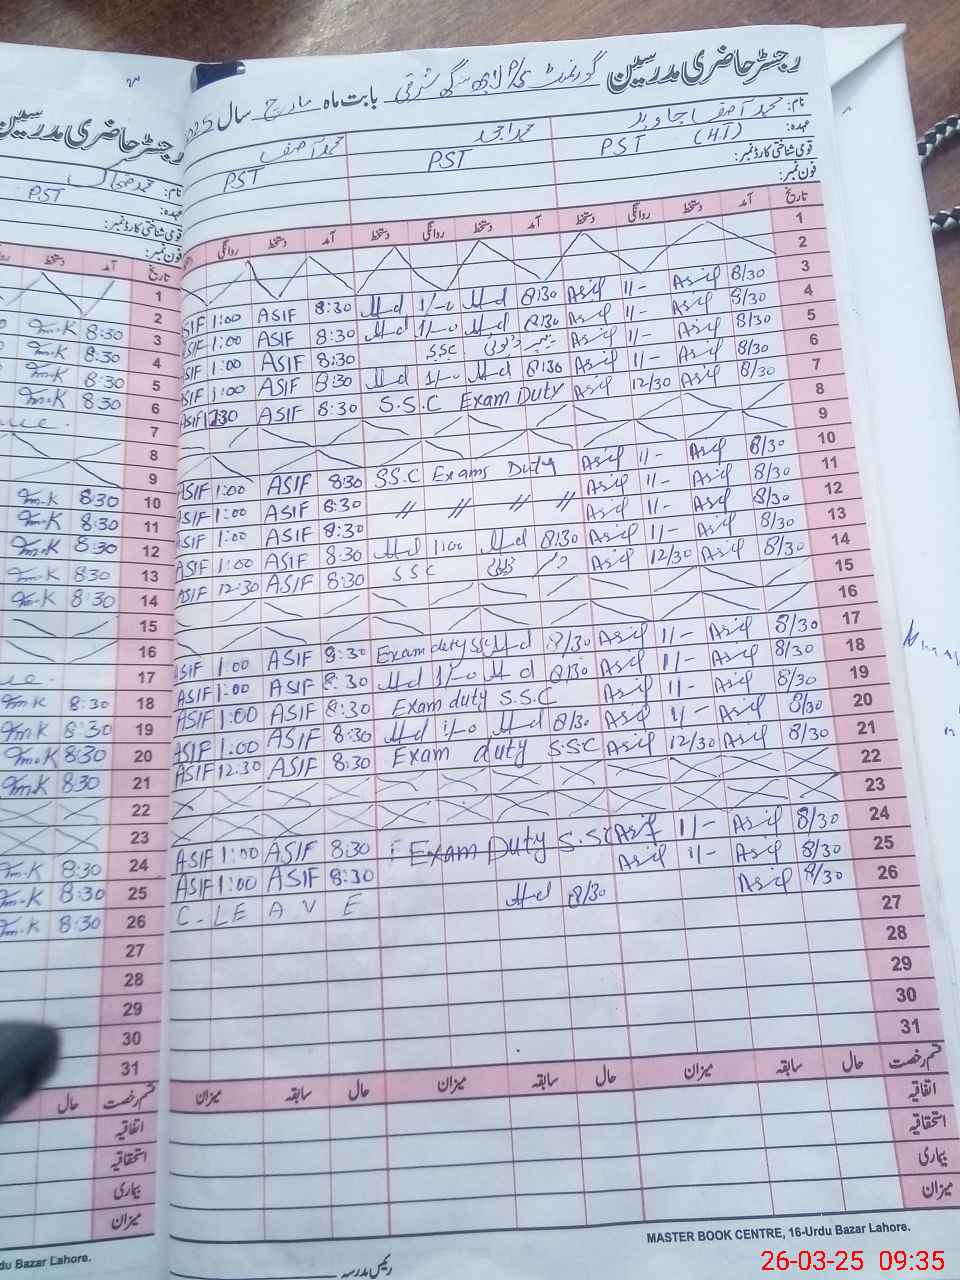 رجسٹر حاضری مدرسین گورنمنٹ بابت ماہ مارچ سال 2025
نام: محمد آصف جاوید محمد امجد محمد آصف
عہدہ: PST (HT) PST PST
قومی شناختی کارڈ نمبر:
فون نمبر:
تاریخ آمد دستخط روانگی دستخط آمد دستخط روانگی دستخط آمد دستخط روانگی
1
2
ASIF 1:00 ASIF 8:30 8/30 Asif 1/- Asif 8/30 3
ASIF 1:00 ASIF 8:30 8/30 Asif 1/- Asif 8/30 4
ASIF 1:00 ASIF 8:30 SSC ڈیوٹی Asif 1/- Asif 8/30 5
ASIF 1:00 ASIF 8:30 8/30 Asif 1/- Asif 8/30 6
ASIF 12:30 ASIF 8:30 S.S.C Exam Duty Asif 12/30 Asif 8/30 7
8
9
ASIF 1:00 ASIF 8:30 SSC Exams Duty Asif 1/- Asif 8/30 10
ASIF 1:00 ASIF 8:30 〃 〃 〃 〃 Asif 1/- Asif 8/30 11
ASIF 1:00 ASIF 8:30 Asif 1/- Asif 8/30 12
ASIF 1:00 ASIF 8:30 1:00 8/30 Asif 1/- Asif 8/30 13
ASIF 12:30 ASIF 8:30 SSC ڈیوٹی Asif 12/30 Asif 8/30 14
15
16
ASIF 1:00 ASIF 8:30 Exam duty SSC 8/30 Asif 1/- Asif 8/30 17
ASIF 1:00 ASIF 8:30 8/30 Asif 1/- Asif 8/30 18
ASIF 1:00 ASIF 8:30 Exam duty S.S.C Asif 1/- Asif 8/30 19
ASIF 1:00 ASIF 8:30 8/30 Asif 1/- Asif 8/30 20
ASIF 12:30 ASIF 8:30 Exam duty S.S.C Asif 12/30 Asif 8/30 21
22
23
ASIF 1:00 ASIF 8:30 Exam Duty S.SC Asif 1/- Asif 8/30 24
ASIF 1:00 ASIF 8:30 Asif 1/- Asif 8/30 25
C-LEAVE 8/30 Asif 8/30 26
27
28
29
30
31
قسم رخصت حال سابقہ میزان حال سابقہ میزان حال سابقہ میزان
اتفاقیہ
استحقاقیہ
بیماری
میزان
MASTER BOOK CENTRE, 16-Urdu Bazar Lahore.
رئیس مدرسہ
رجسٹر حاضری مدرسین
نام: محمد
عہدہ: PST
قومی شناختی کارڈ نمبر:
فون نمبر:
تاریخ آمد دستخط
1
2
Tm.K 8:30 3
Tm.K 8:30 4
Tm.K 8:30 5
Tm.K 8:30 6
7
8
9
Tm.K 8:30 10
Tm.K 8:30 11
Tm.K 8:30 12
Tm.K 8:30 13
Tm.K 8:30 14
15
16
17
Tm.K 8:30 18
Tm.K 8:30 19
Tm.K 8:30 20
Tm.K 8:30 21
22
23
Tm.K 8:30 24
Tm.K 8:30 25
Tm.K 8:30 26
27
28
29
30
31
قسم رخصت حال
اتفاقیہ
استحقاقیہ
بیماری
میزان
du Bazar Lahore.
26-03-25 09:35